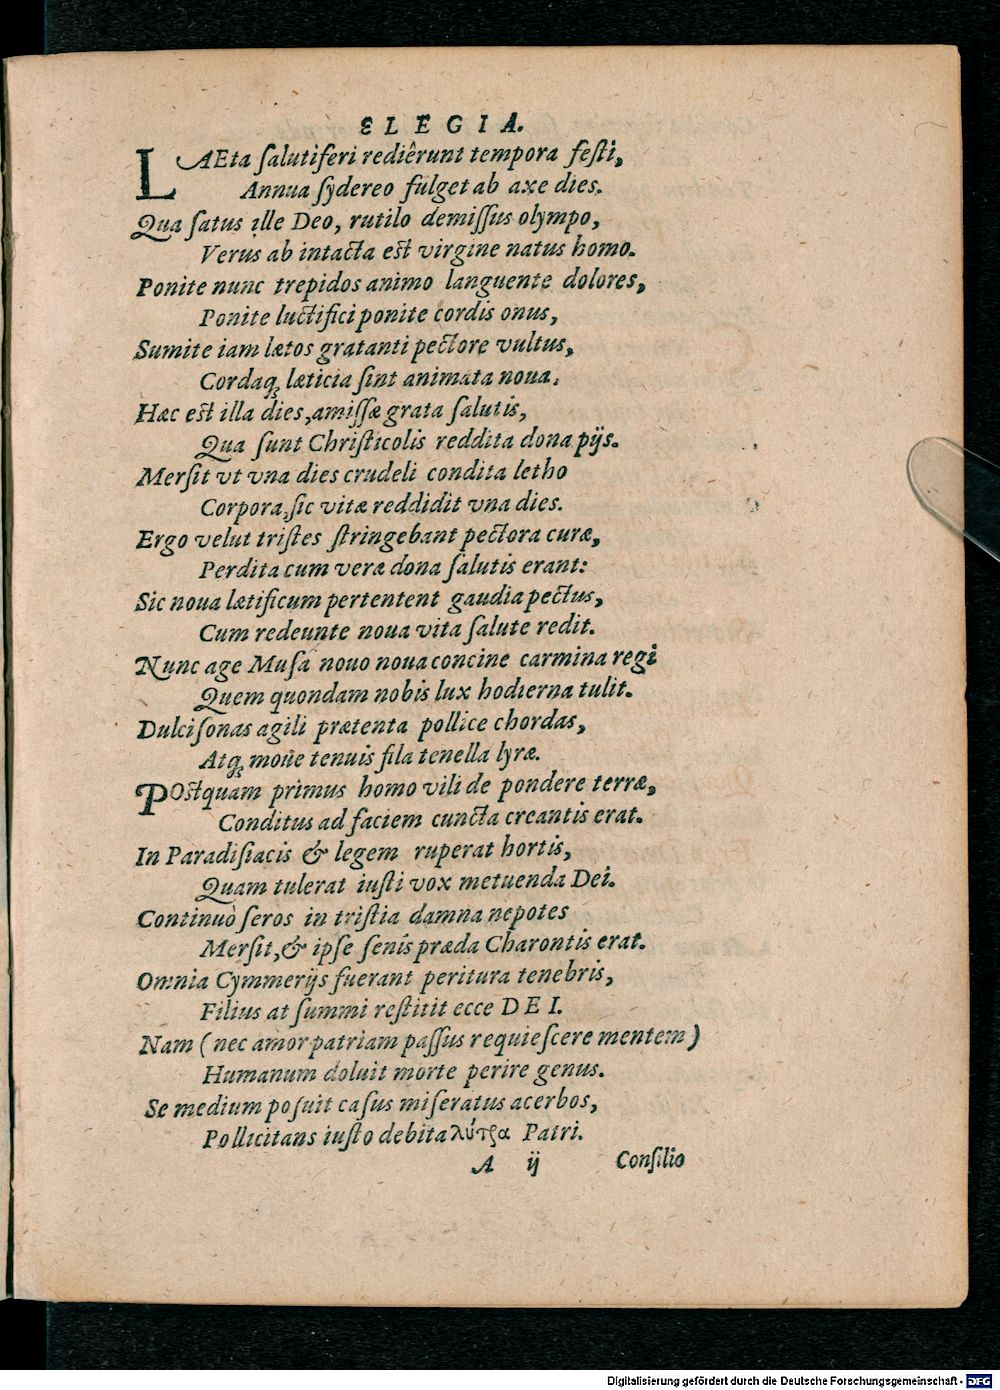 ELEGIA.
LAEta salutiferi rediêrunt tempora festi,
Annua sydereo fulget ab axe dies.
Qua satus ille Deo, rutilo demissus olympo,
Verus ab intacta est virgine natus homo.
Ponite nunc trepidos animo languente dolores,
Ponite luctifici ponite cordis onus,
Sumite iam lætos gratanti pectore vultus,
Cordaq; læticia sint animata noua.
Hæc est illa dies, amissæ grata salutis,
Qua sunt Christicolis reddita dona pijs.
Mersit vt vna dies crudeli condita letho
Corpora, sic vitæ reddidit vna dies.
Ergo velut tristes stringebant pectora curæ,
Perdita cum veræ dona salutis erant:
Sic noua lætificum pertentent gaudia pectus,
Cum redeunte noua vita salute redit.
Nunc age Musa nouo noua concine carmina regi
Quem quondam nobis lux hodierna tulit.
Dulcisonas agili prætenta pollice chordas,
Atq; moue tenuis fila tenella lyræ.
POstquam primus homo vili de pondere terræ,
Conditus ad faciem cuncta creantis erat.
In Paradisiacis & legem ruperat hortis,
Quam tulerat iusti vox metuenda Dei.
Continuò seros in tristia damna nepotes
Mersit, & ipse senis præda Charontis erat.
Omnia Cymmerijs fuerant peritura tenebris,
Filius at summi restitit ecce DEI.
Nam (nec amor patriam passus requiescere mentem)
Humanum doluit morte perire genus.
Se medium posuit casus miseratus acerbos,
Pollicitans iusto debita λύτρα Patri.
A ij Consilio
Digitalisierung gefördert durch die Deutsche Forschungsgemeinschaft - DFG